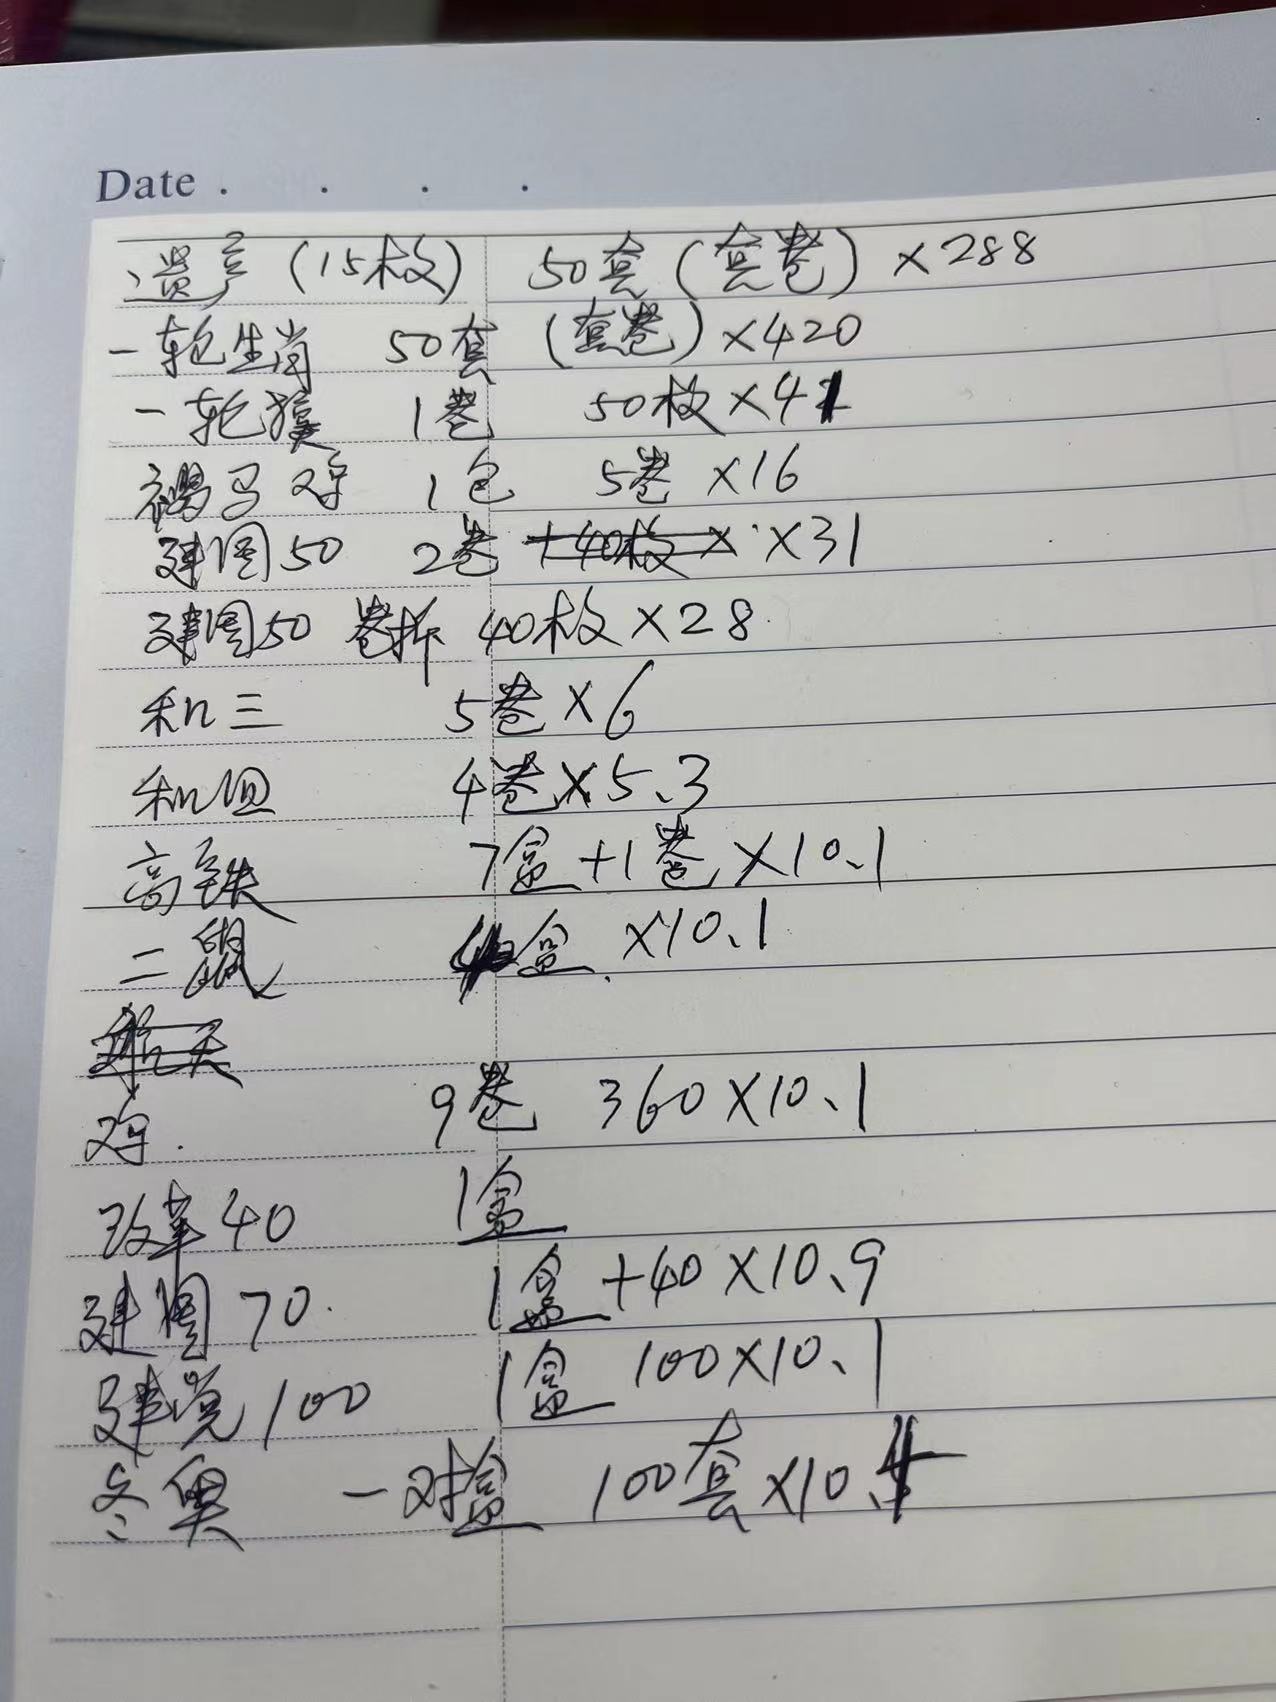 Date . . . .
遗产(15枚) 50套(套卷)×288
一轮生肖 50套(套卷)×420
一轮猴 1卷 50枚×41
褐马鸡 1包 5卷×16
建国50 2卷 +40枚× ×31
建国50 卷拆 40枚×28
和三 5卷×6
和四 4卷×5.3
高铁 7盒+1卷×10.1
二鼠 盒 ×10.1
航天
鸡. 9卷 360×10.1
改革40 1盒
建国70. 1盒+40×10.9
建党100 1盒 100×10.1
冬奥 一对盒 100套×10.